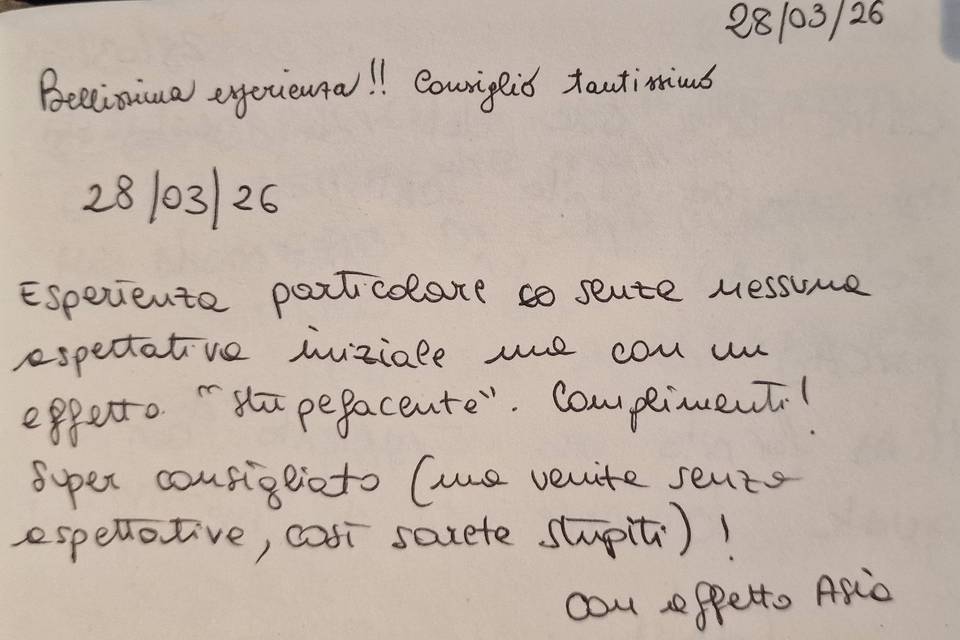 28/03/26
Bellissima esperienza!! Consiglio tantissimo
28/03/26
Esperienza particolare senza nessuna
aspettativa iniziale ma con un
effetto "stupefacente". Complimenti!
Super consigliato (ma venite senza
aspettative, così sarete stupiti)!
con affetto Asia